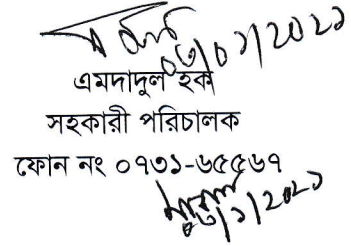 ০৩/০১/২০২১
এমদাদুল হক
সহকারী পরিচালক
ফোন নং ০৭৩১-৬৫৫৬৭